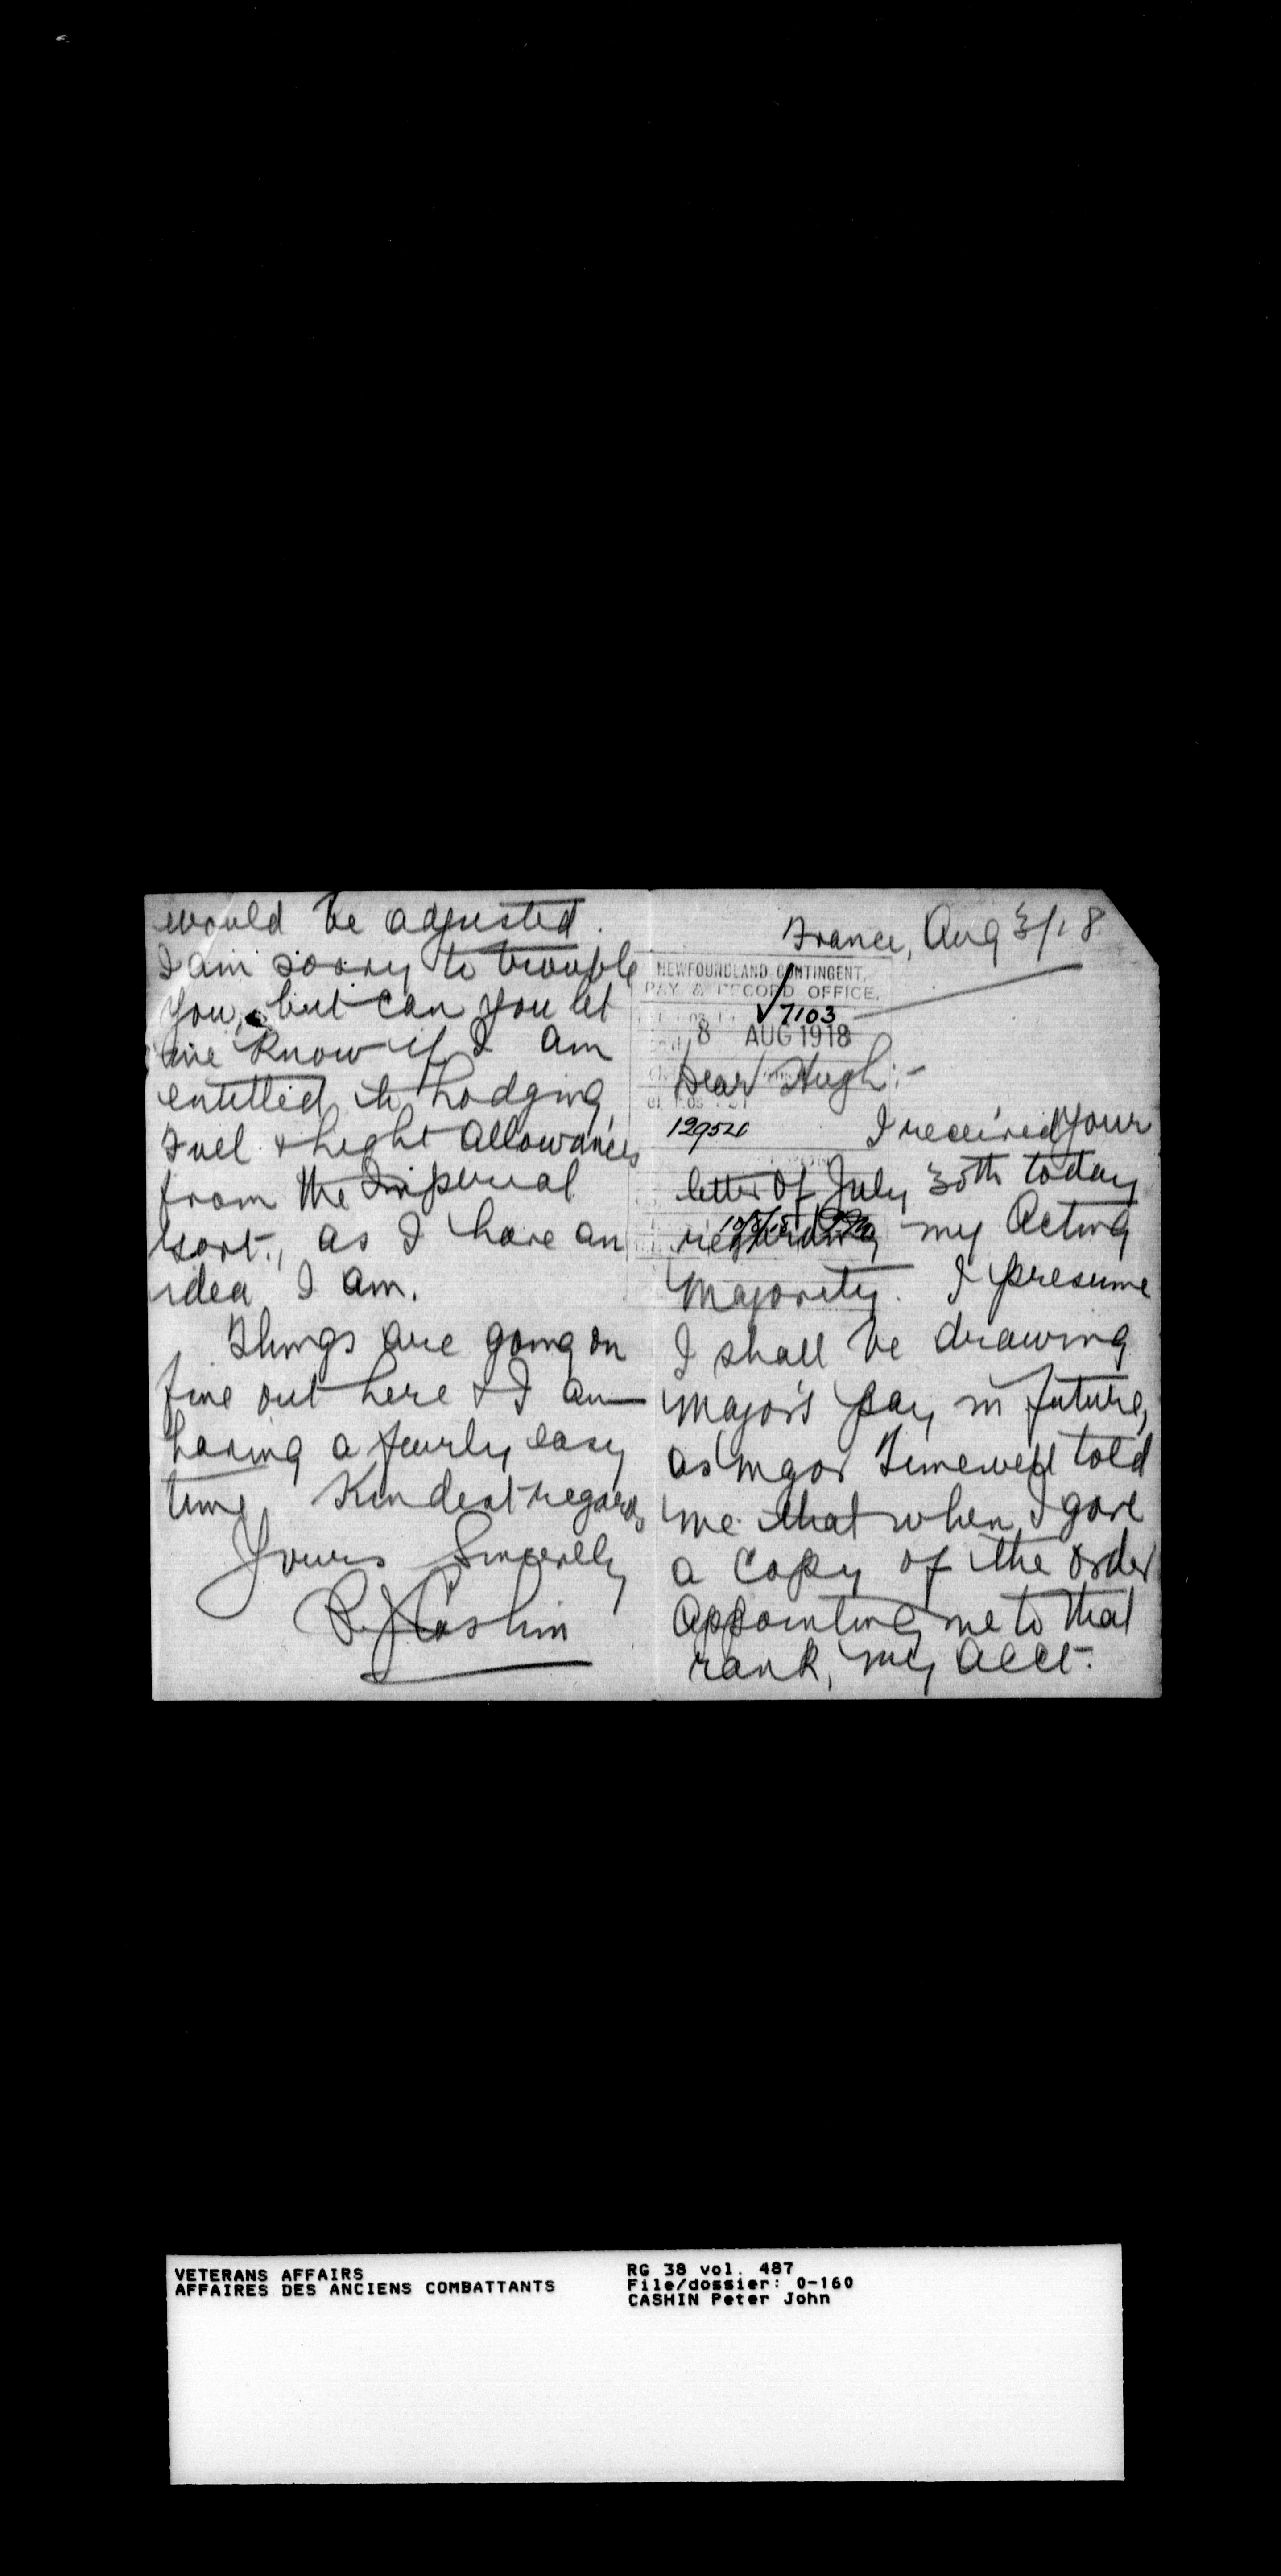 France, Aug 3/18
NEWFOUNDLAND CONTINGENT.
PAY & RECORD OFFICE.
7103
8 AUG 1918
Dear Hugh:-
I received your
letter of July 30th today
regarding my Acting
Majority. I presume
I shall be drawing
Major's pay in future,
as Major Timewell told
me that when I gave
a copy of the order
appointing me to that
rank, my acct.
would be adjusted.
I am sorry to trouble
you, but can you let
me know if I am
entitled to Lodging
Fuel & Light Allowances
from the Imperial
Govt., as I have an
idea I am.
Things are going on
fine out here & I am
having a fairly easy
time. Kindest regards
Yours Sincerely
P.J. Cashin
VETERANS AFFAIRS
AFFAIRES DES ANCIENS COMBATTANTS
RG 38 vol. 487
File/dossier: 0-160
CASHIN Peter John